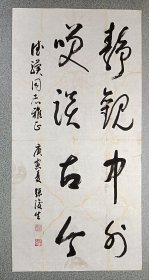 静观中外
笑谈古今
德謨同志雅正
庚寅夏 张俊生